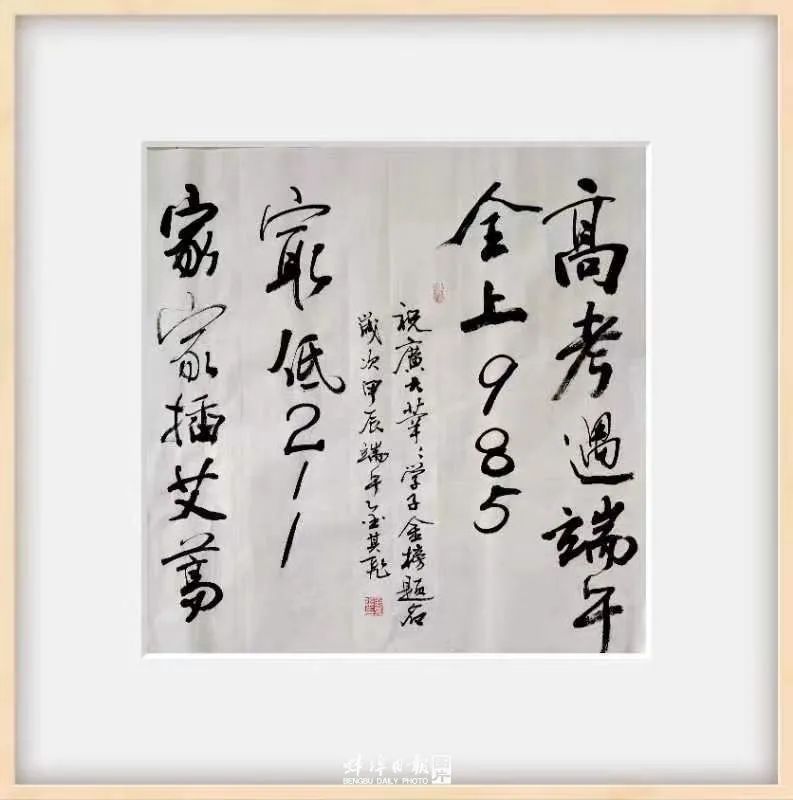 高考遇端午
全上985
祝廣大莘〻学子金榜题名
歲次甲辰端午其乾
最低211
家家插艾蒿
蚌埠日報
BENGBU DAILY PHOTO